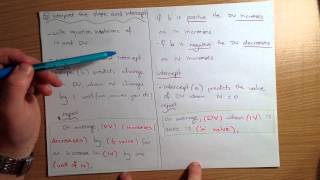 ② Interpret the slope and intercept
- write equation in terms of
IV and DV
intercept:
slope (b) predicts change
in DV when IV changes
by 1 unit
report
On average, (DV) (increases/
decreases) by ('b value') for
an increase in (IV) by one
(unit of IV).
if b is positive the DV increases
as IV increases
- if b is negative the DV decreases
as IV increases
intercept
- intercept (a) predicts the value
of DV when IV = 0
report
On average, (DV) when (IV) is
zero is ('a' value).